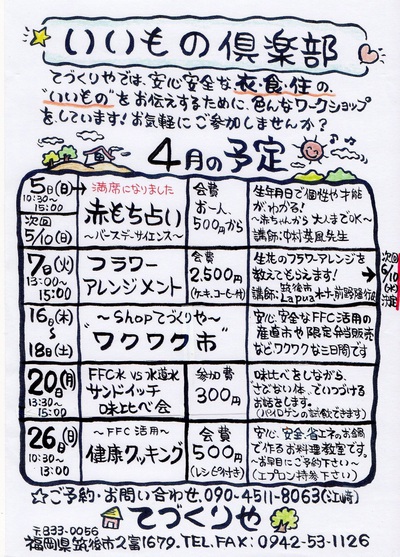 いいもの倶楽部
てづくりやでは、安心安全な衣・食・住の、
"いいもの"をお伝えするために、色んなワークショップ
をしています！お気軽にご参加しませんか？
4月の予定
5日(日)
10:30~
15:00
次回
5/10(日)
満席になりました
赤もち占い
~バースデーサイエンス~
会費
お一人、
500円から
生年月日で個性や才能
がわかる！
~赤ちゃんから大人までOK~
講師:中村英風先生
7日(火)
13:00~
15:00
フラワー
アレンジメント
会費
2,500円
(ケーキ、コーヒー付)
生花のフラワーアレンジを
教えてもらえます！
講師:筑後市
Lapua
次回
6/10
(水)
決定
16日(木)
~
18日(土)
~Shopてづくりや~
"ワクワク市"
安心、安全なFFC活用の
産直市や限定弁当販売
などワクワクな三日間です
20日(月)
13:30~
15:00
FFC水 VS 水道水
サンドイッチ
味比べ会
参加費
300円
味比べをしながら、
さびない体、ていつづける
お話をします。
(パイロゲンの試飲できます)
26日(日)
10:30~
13:00
~FFC活用~
健康クッキング
会費
500円
(レシピ付き)
安心、安全、省エネのお鍋
で作るお料理教室です。
~お早目にご予約下さい~
(エプロン持参下さい)
☆ご予約・お問い合わせ、090-4511-8063(江崎)
てづくりや
〒833-0056
福岡県筑後市久富1679. TEL、FAX: 0942-53-1126